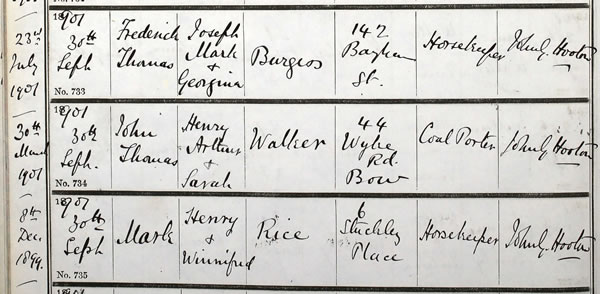 23rd July 1901
1901 30th Sept. No. 733
Frederick Thomas
Joseph Mark & Georgina
Burgess
142 Bayham St.
Horsekeeper
John G. Hooton
30th March 1901
1901 30th Sept. No. 734
John Thomas
Henry Arthur & Sarah
Walker
44 Wylie Rd. Bow
Coal Porter
John G. Hooton
8th Dec. 1899.
1901 30th Sept No. 735
Mark
Henry & Winnifred
Rice
6 Stuckley Place
Horsekeeper
John G. Hooton